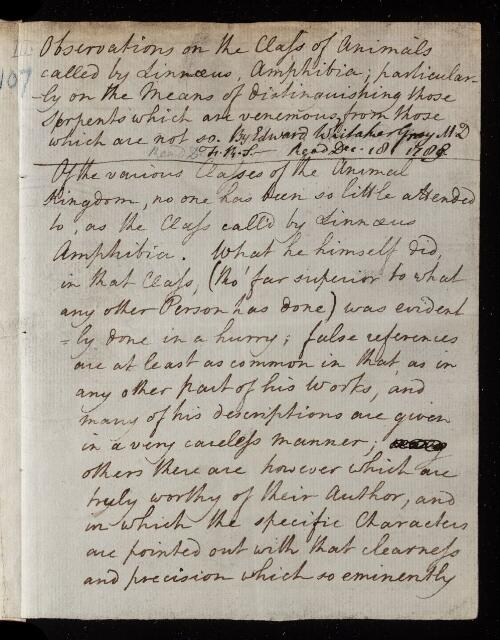 107
Observations on the Class of Animals
called by Linnæus, Amphibia; particular-
-ly on the Means of distinguishing those
Serpents which are venemous, from those
which are not so. By Edward Whitaker Gray MD
F.R.S. Read Dec. 18 1788
Of the various Classes of the Animal
Kingdom, no one has been so little attended
to, as the Class call'd by Linnæus
Amphibia. What he himself did,
in that Class, (tho' far superior to what
any other Person has done) was evident
=ly done in a hurry; false references
are at least as common in that, as in
any other part of his Works, and
many of his descriptions are given
in a very careless manner;
others there are however which are
truly worthy of their Author, and
in which the specific Characters
are pointed out with that clearness
and precision which so eminently